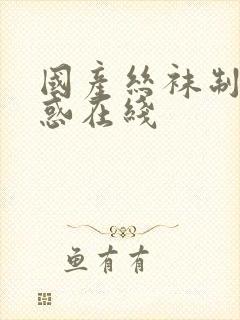 國產絲袜制
惑在綫
鱼有有